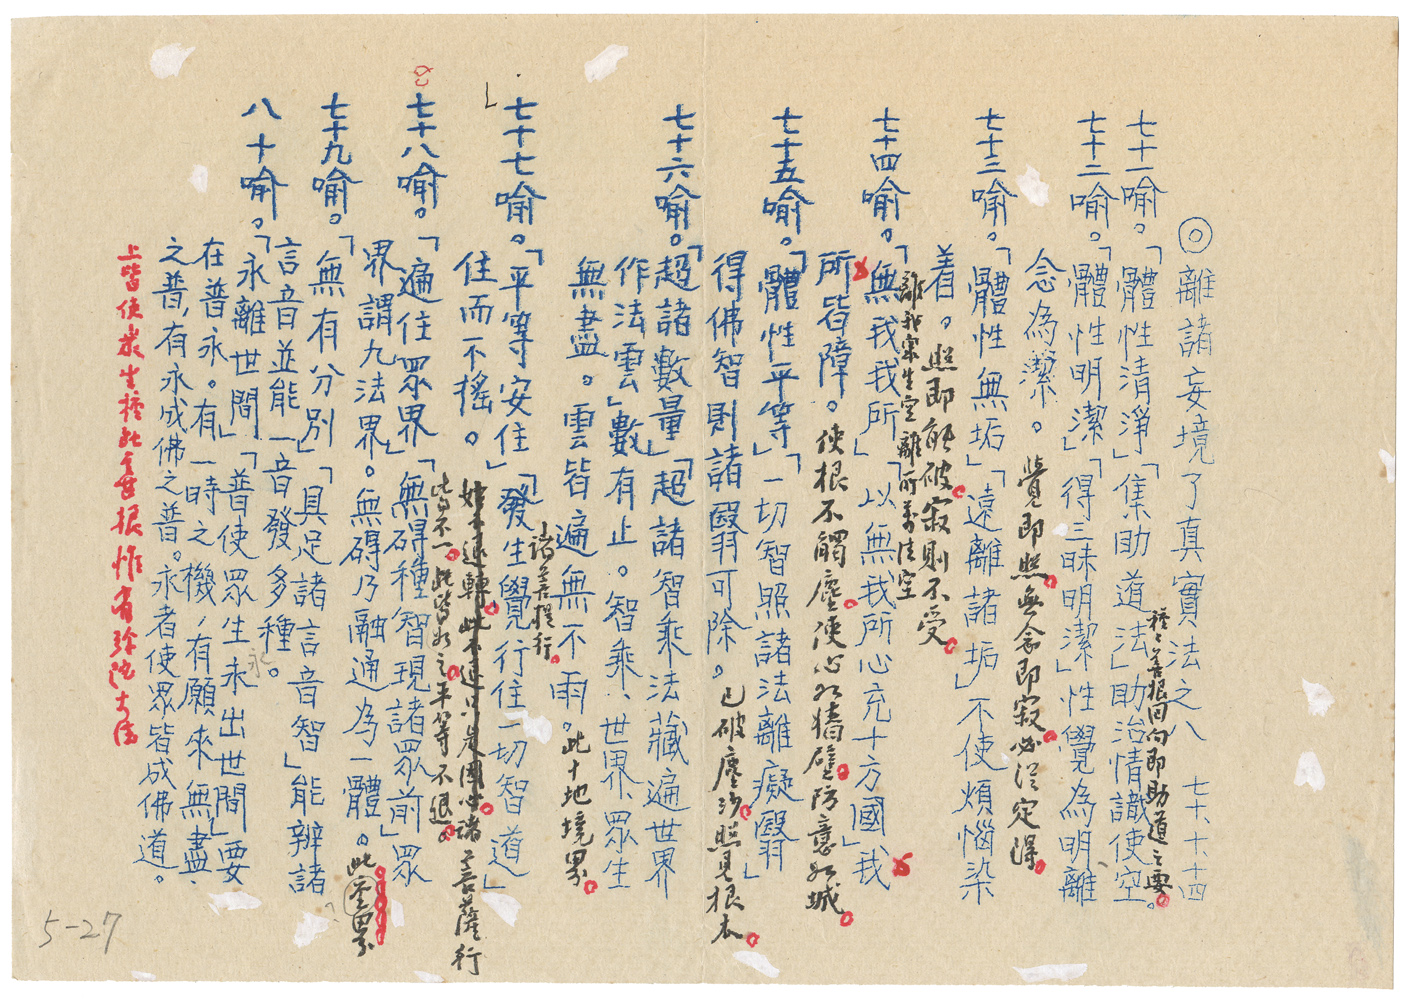 ◎離諸妄境了真實法之八　七十、十、十四
種々善根回向即助道之要。
七十一喻。「體性清淨」「集助道法」助治情識使空。
七十二喻。「體性明潔」「得三昧明潔」性覺為明離
念為潔。覺即照。無念即寂必從定得。
七十三喻。「體性無垢」「遠離諸垢」不使煩惱染
着。照即能破。寂則不受。
離我宗生空離所着法空
七十四喻。「無我我所」「以無我所心充十方國」我
所皆障。使根不觸塵。使心如牆壁。防意如城。
七十五喻。「體性平等」「一切智照諸法離癡翳」
得佛智則諸翳可除。已破塵沙。照見根本。
七十六喻。「超諸數量」「超諸智乘法藏遍世界
作法雲」數有止。智乘、世界、眾生
無盡。雲皆遍無不雨。此十地境界。
諸菩提行。
七十七喻。「平等安住」「發生覺行住一切智道」
住而不搖。始未退轉。此不退只是團心。諸菩薩行
皆不一。此皆如之。平等不退。
七十八喻。「遍住眾界」「無碍種智現諸眾前」眾
界謂九法界。無碍乃融通為一體。此空界
七十九喻。「無有分別」「具足諸言音智」能辨諸
言音並能一音發多種。
永
八十喻。「永離世間」「普使眾生永出世間」要
在普永。有一時之機,有願來無盡、
之普,有永成佛之普。永者使眾皆成佛道。
上皆使眾生種此善根惟有彌陀大法
5-27